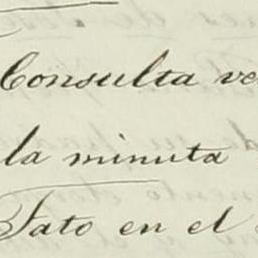 Consulta ve
la minuta
Tato en el